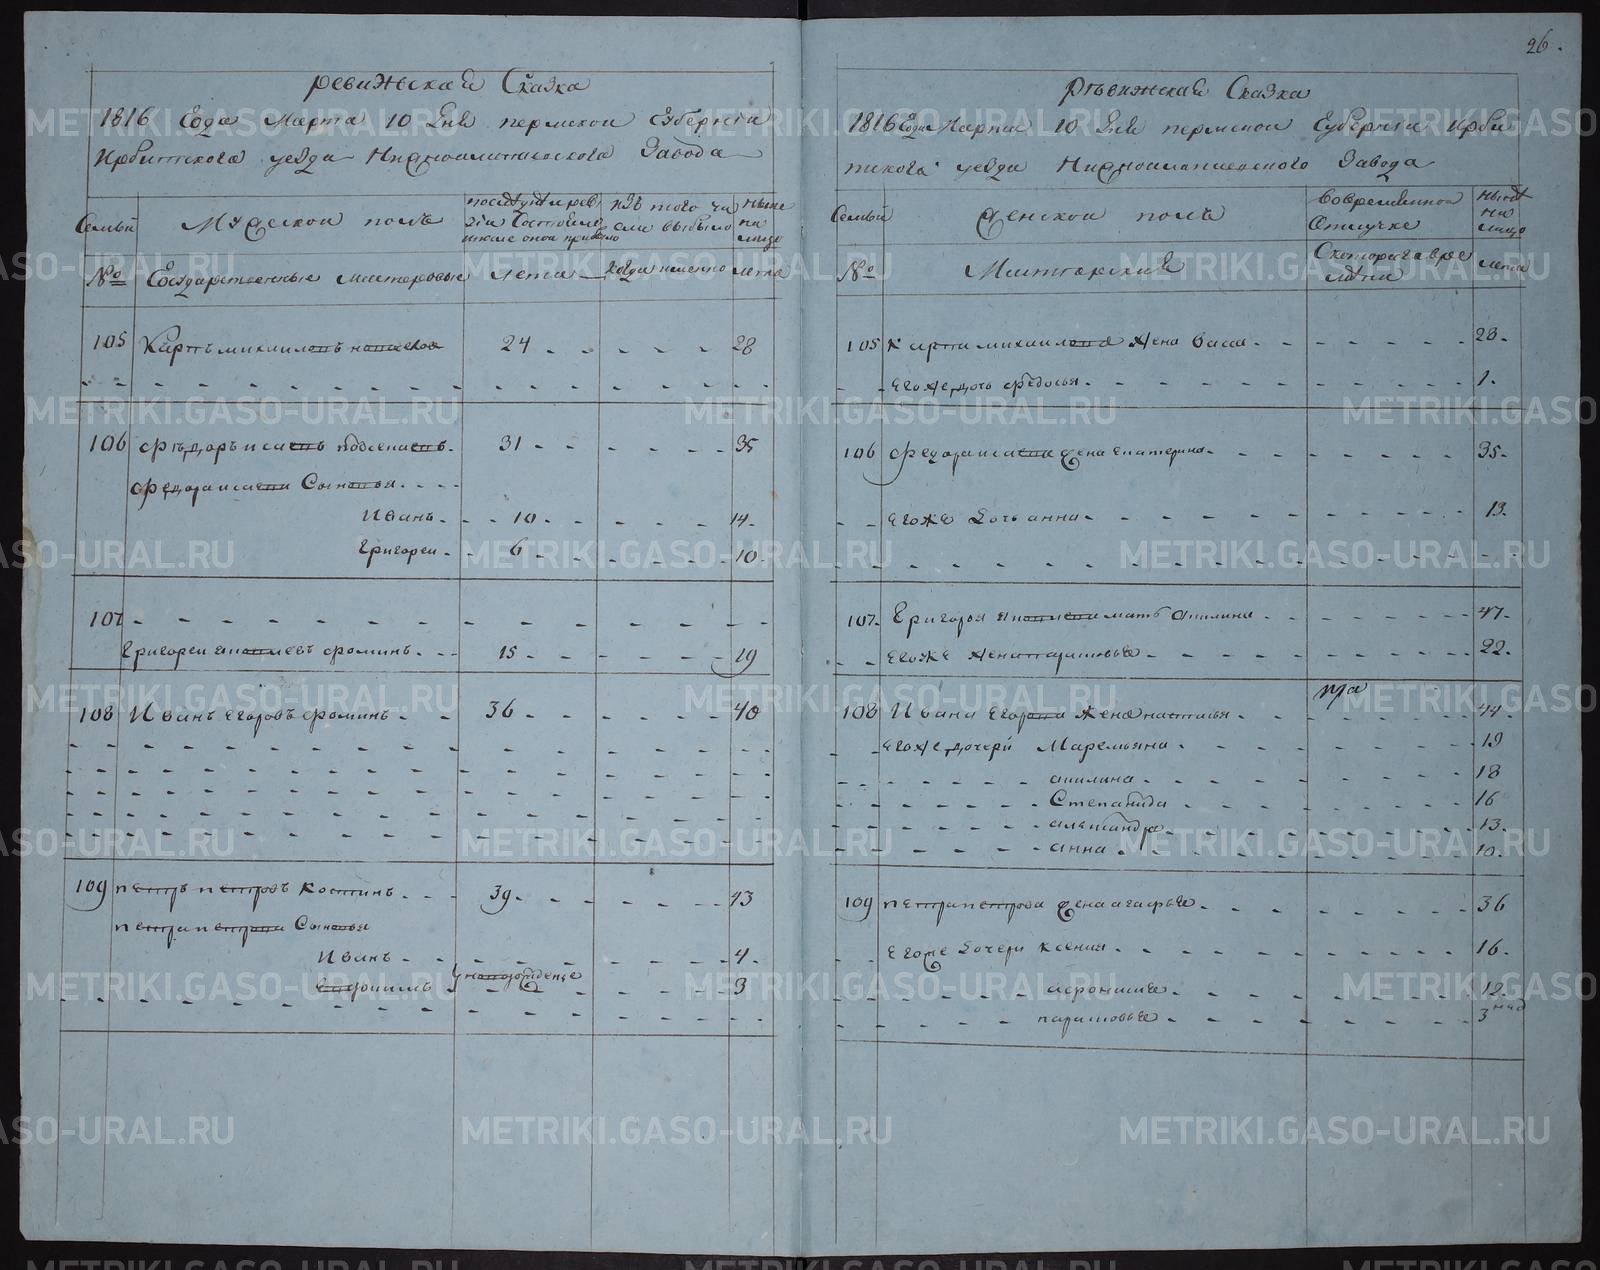 26.
Ревижская Сказка
1816 Года Марта 10 дня пермской Губернiи
Ирбитского уезда Нижноалапаевского Завода
Семьи
Мужеской полъ
последней реви
зiи состояло
и после оной прибыло
изъ того чи
сла выбыло
ныне
на
лицо
№
Государственные мастеровые
лета
когда именно
лета
105 Карпъ михаиловъ 24 28
106 фёдоръ исаевъ 31 35
федора исаева Сыновья
Иванъ 10 14
Григореи 6 10
107
Григореи фоминъ 15 19
108 Иванъ егоровъ фоминъ 36 40
109 петръ петровъ Костинъ 39 43
петра петрова Сыновья
Иванъ 4
3
Ревижская Сказка
1816 Года Марта 10 дня пермской Губернiи Ирби
тского уезда Нижноалапаевского Завода
Семьи
Женской полъ
вовременной
отлучке
ныне
на
лицо
№
Мастерския
С которого вре
мени
лета
105 Карпа михаилова жена васса 28
его же дочь федосья 1
106 федора исаева жена екатерина 35
его же дочь анна 13
107 Григорья мать акилина 47
его же жена парасковья 22
108 Ивана егорова жена настасья 44
его же дочери Маремьяна 19
акилина 18
Степанида 16
александра 13
анна 10
109 петра петрова жена агафья 36
его же дочери ксения 16
афрониия 12
парасковья 3 нед
METRIKI.GASO-URAL.RU